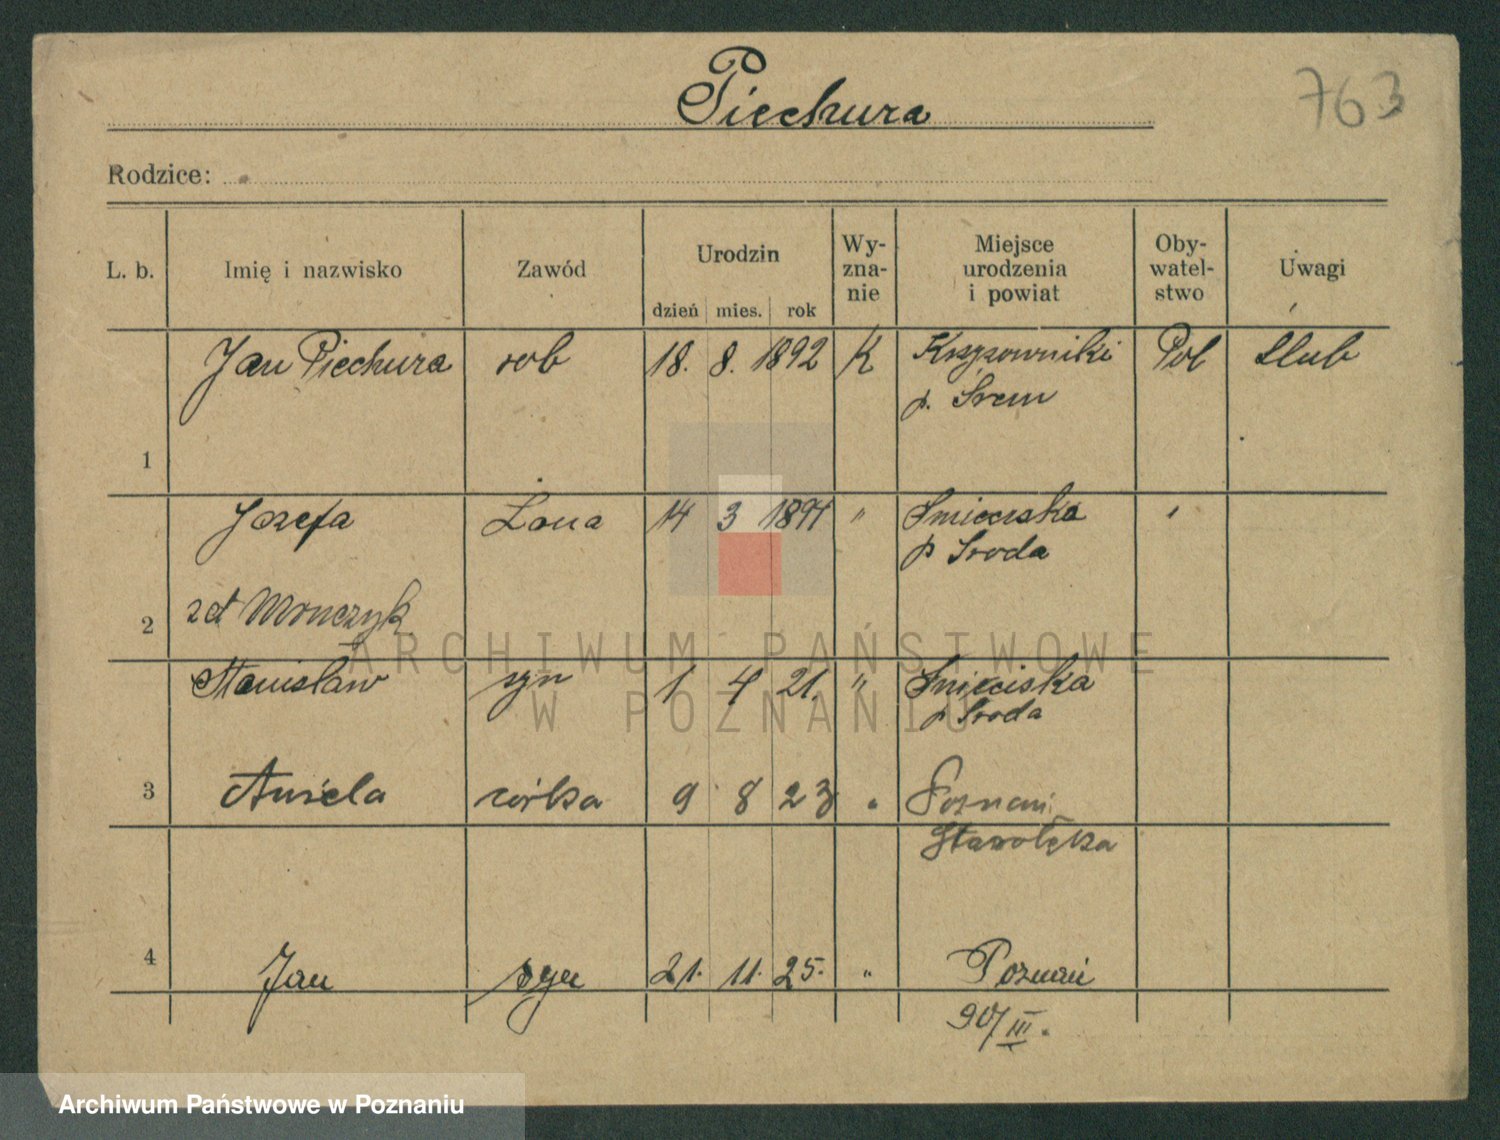 Piechura
763
Rodzice:
L. b. Imię i nazwisko Zawód Urodzin dzień mies. rok Wy-zna-nie Miejsce urodzenia i powiat Oby-watel-stwo Uwagi
1 Jan Piechura rob 18. 8. 1892 K Krzyżowniki Pol ślub
p. Śrem
2 Józefa Żona 14 3 1894 " Śnieciska "
p Środa
zd
Stanisław syn 1 4 21. " Śnieciska
p Środa
3 Aniela córka 9 8 23 " Poznań
Starołęka
4 Jan syn 21. 11. 25. " Poznań
907/III.
ARCHIWUM PAŃSTWOWE
W POZNANIU
Archiwum Państwowe w Poznaniu